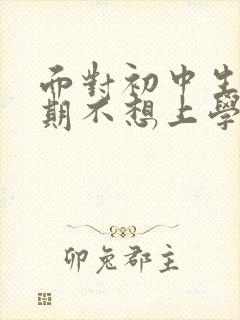 而對初中生
期不想上學
卯兔郡主